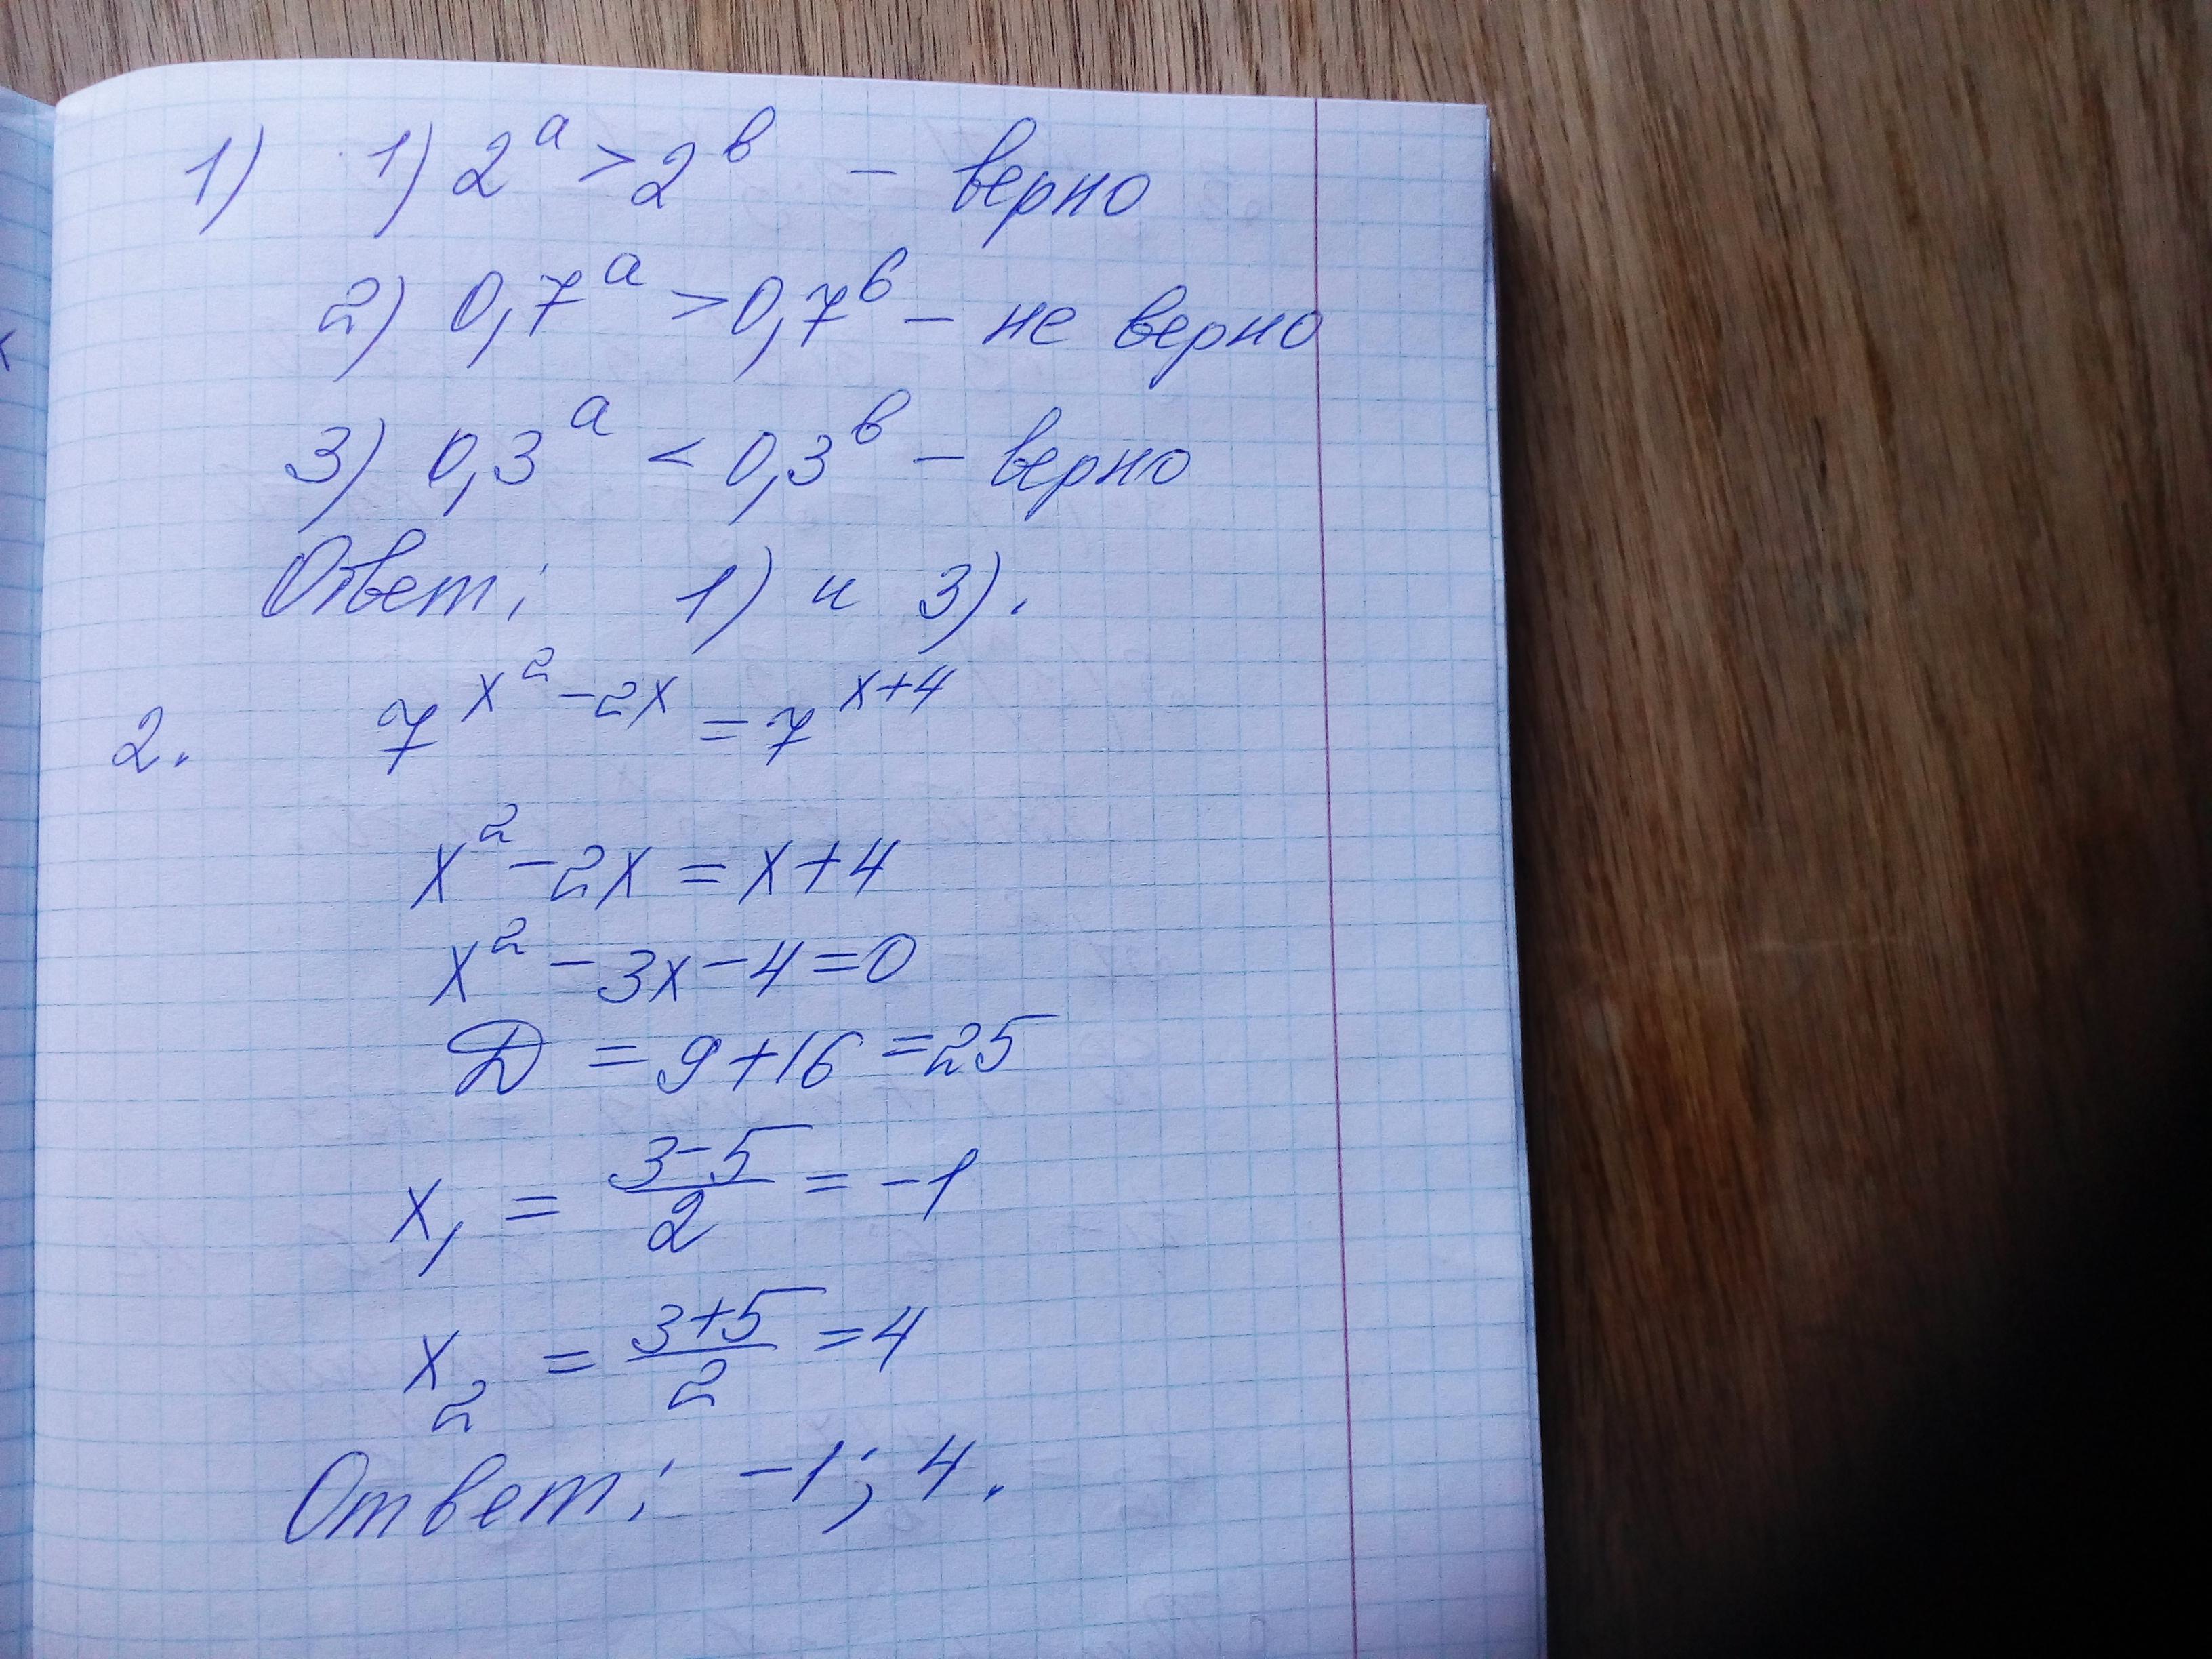 1) 1) 2^a > 2^в – верно
2) 0,7^a > 0,7^в – не верно
3) 0,3^a < 0,3^в – верно
Ответ: 1) и 3).
2. 7^(x²-2x) = 7^(x+4)
x² - 2x = x + 4
x² - 3x - 4 = 0
Д = 9 + 16 = 25
x₁ = (3-5)/2 = -1
x₂ = (3+5)/2 = 4
Ответ: -1; 4.